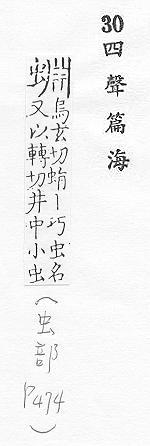 30 四聲篇海
烏玄切蜎丨巧虫名又以轉切井中小虫(虫部 P474)